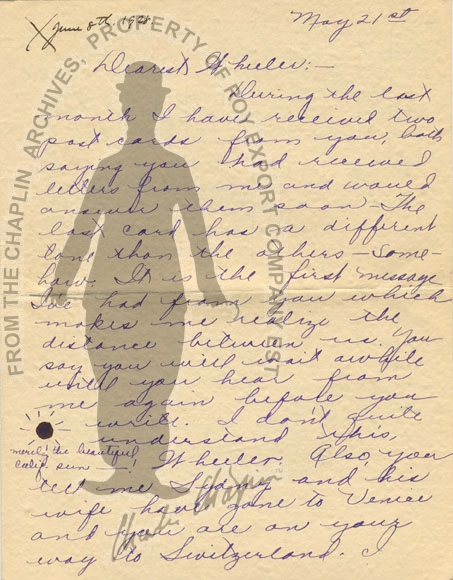 June 8th, 1928
May 21st
Dearest Wheeler:—
During the last
month I have received two
post cards from you, both
saying you had received
letters from me and would
answer them soon — The
last card has a different
tone than the others — Some-
how. It is the first message
I've had from you which
makes me realize the
distance between us. You
say you will wait awhile
until you hear from
me again before you
write. I don't quite
understand this,
Wheeler. Also, you
tell me Sydney and his
wife have gone to Venice
and you are on your
way to Switzerland. I
merely the beautiful
Calif. sun — !
FROM THE CHAPLIN ARCHIVES, PROPERTY OF ROY EXPORT COMPANY EST.
Charlie Chaplin™